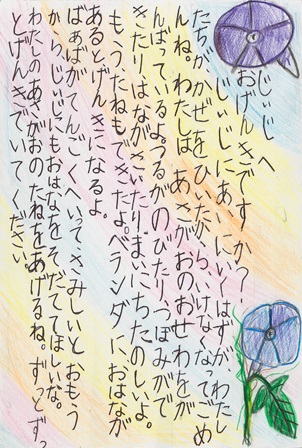 じぃじ へ
おげんきですか?
じぃじにあいにいくはずが、わたし
たちが かぜをひいたから、いけなくなってごめ
んね。わたしは、あさがおのおせわをが
んばっているよ。つるがのびたり、つぼみがで
きたり、はながさいたり、まいにちたのしいよ。
もうたねもできたよ。ベランダに、おはなが
あるとげんきになるよ。
ばぁばがてんごくへいってさみしいと、おもう
から、じぃじにもおはなをそだててほしいな。
わたしのあさがおのたねをあげるね。ずっとずっ
とげんきでいてください。